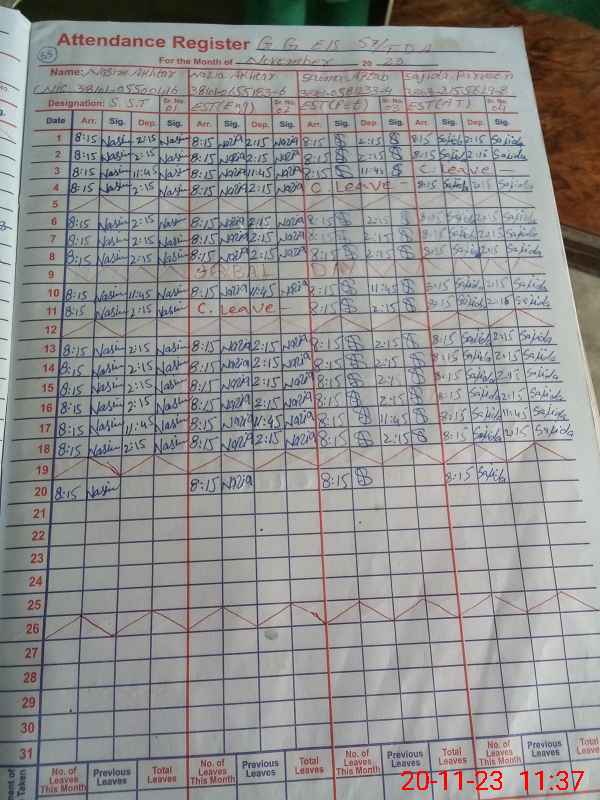 Attendance Register G G E/S 57/FDA
For the Month of November 20 23
Name: Nasim Akhtar Nazia Akhtar Aftab Sajida Parveen
Designation: S.S.T Sr. No. 01 EST(Eng) Sr. No. 02 EST Sr. No. 03 EST(MT) Sr. No. 04
Date Arr. Sig. Dep. Sig. Arr. Sig. Dep. Sig. Arr. Sig. Dep. Sig. Arr. Sig. Dep. Sig.
1 8:15 Nasim 2:15 Nasim 8:15 Nazia 2:15 Nazia 8:15 2:15 8:15 Sajida 2:15 Sajida
2 8:15 Nasim 2:15 Nasim 8:15 Nazia 2:15 Nazia 8:15 2:15 8:15 Sajida 2:15 Sajida
3 8:15 Nasim 11:45 Nasim 8:15 Nazia 11:45 Nazia 8:15 11:45 C. Leave -
4 8:15 Nasim 2:15 Nasim 8:15 Nazia 2:15 Nazia C. Leave - 8:15 Sajida 2:15 Sajida
5
6 8:15 Nasim 2:15 Nasim 8:15 Nazia 2:15 Nazia 8:15 2:15 8:15 Sajida 2:15 Sajida
7 8:15 Nasim 2:15 Nasim 8:15 Nazia 2:15 Nazia 8:15 2:15 8:15 Sajida 2:15 Sajida
8 8:15 Nasim 2:15 Nasim 8:15 Nazia 2:15 Nazia 8:15 2:15 8:15 Sajida 2:15 Sajida
9 DAY
10 8:15 Nasim 11:45 Nasim 8:15 Nazia 11:45 Nazia 8:15 11:45 8:15 Sajida 2:15 Sajida
11 8:15 Nasim 2:15 Nasim C. Leave - 8:15 2:15 8:15 Sajida 2:15 Sajida
12
13 8:15 Nasim 2:15 Nasim 8:15 Nazia 2:15 Nazia 8:15 2:15 8:15 Sajida 2:15 Sajida
14 8:15 Nasim 2:15 Nasim 8:15 Nazia 2:15 Nazia 8:15 2:15 8:15 Sajida 2:15 Sajida
15 8:15 Nasim 2:15 Nasim 8:15 Nazia 2:15 Nazia 8:15 2:15 8:15 Sajida 2:15 Sajida
16 8:15 Nasim 2:15 Nasim 8:15 Nazia 2:15 Nazia 8:15 2:15 8:15 Sajida 2:15 Sajida
17 8:15 Nasim 11:45 Nasim 8:15 Nazia 11:45 Nazia 8:15 11:45 8:15 Sajida 11:45 Sajida
18 8:15 Nasim 2:15 Nasim 8:15 Nazia 2:15 Nazia 8:15 2:15 8:15 Sajida 2:15 Sajida
19
20 8:15 Nasim 8:15 Nazia 8:15 8:15 Sajida
21
22
23
24
25
26
27
28
29
30
31
No. of Leaves This Month Previous Leaves Total Leaves No. of Leaves This Month Previous Leaves Total Leaves No. of Leaves This Month Previous Leaves Total Leaves No. of Leaves This Month Previous Leaves Total
20-11-23 11:37